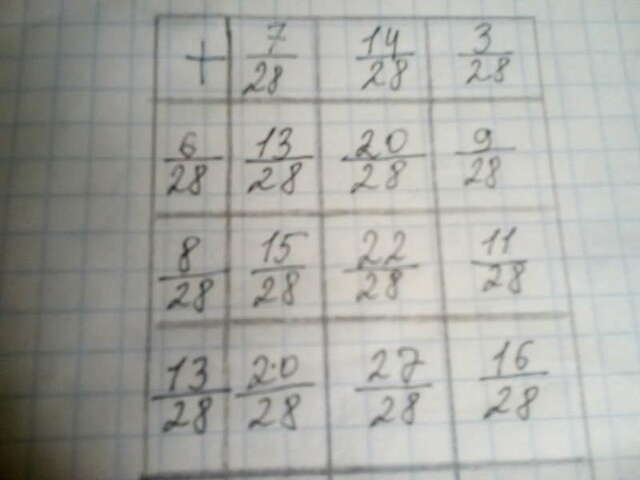 + 7/28 14/28 3/28
6/28 13/28 20/28 9/28
8/28 15/28 22/28 11/28
13/28 20/28 27/28 16/28